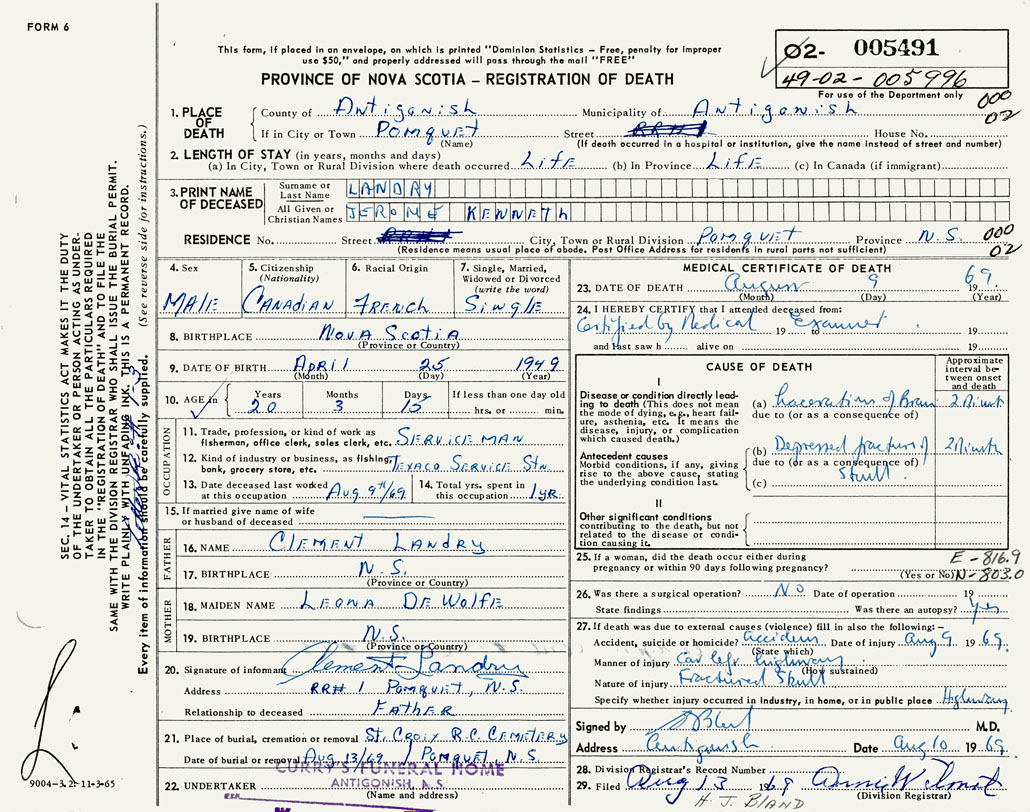 FORM 6
This form, if placed in an envelope, on which is printed "Dominion Statistics – Free, penalty for improper
use $50," and properly addressed will pass through the mail "FREE"
PROVINCE OF NOVA SCOTIA – REGISTRATION OF DEATH
02- 005491
49-02-005996
For use of the Department only
000
02
1. PLACE OF DEATH
County of Antigonish Municipality of Antigonish
If in City or Town Pomquet Street RR#1 House No.
(Name) (If death occurred in a hospital or institution, give the name instead of street and number)
2. LENGTH OF STAY (in years, months and days)
(a) In City, Town or Rural Division where death occurred Life (b) In Province Life (c) In Canada (if immigrant)
3. PRINT NAME OF DECEASED
Surname or Last Name LANDRY
All Given or Christian Names JEROME KENNETH
RESIDENCE No. Street RR#1 City, Town or Rural Division Pomquet Province N.S. 000
(Residence means usual place of abode. Post Office Address for residents in rural parts not sufficient) 02
4. Sex MALE
5. Citizenship (Nationality) CANADIAN
6. Racial Origin FRENCH
7. Single, Married, Widowed or Divorced (write the word) SINGLE
8. BIRTHPLACE NOVA SCOTIA
(Province or Country)
9. DATE OF BIRTH April 25 1949
(Month) (Day) (Year)
10. AGE in Years Months Days If less than one day old
20 3 15 hrs. or min.
OCCUPATION
11. Trade, profession, or kind of work as fisherman, office clerk, sales clerk, etc. SERVICE MAN
12. Kind of industry or business, as fishing, bank, grocery store, etc. TEXACO SERVICE STN
13. Date deceased last worked at this occupation Aug 9th/69
14. Total yrs. spent in this occupation 1 yr.
15. If married give name of wife or husband of deceased
FATHER
16. NAME CLEMENT LANDRY
17. BIRTHPLACE N.S.
(Province or Country)
MOTHER
18. MAIDEN NAME LEONA DEWOLFE
19. BIRTHPLACE N.S.
(Province or Country)
20. Signature of informant Clement Landry
Address RR# 1 POMQUET, N.S.
Relationship to deceased FATHER
21. Place of burial, cremation or removal ST. CROIX R.C. CEMETERY
Date of burial or removal Aug 13/69 POMQUET, N.S.
CURRY'S FUNERAL HOME
ANTIGONISH, N.S.
22. UNDERTAKER
(Name and address)
MEDICAL CERTIFICATE OF DEATH
23. DATE OF DEATH August 9 1969.
(Month) (Day) (Year)
24. I HEREBY CERTIFY that I attended deceased from:
Certified by Medical 19 Examiner 19
and last saw h alive on 19
CAUSE OF DEATH
Approximate interval between onset and death
I
Disease or condition directly leading to death (This does not mean the mode of dying, e.g., heart failure, asthenia, etc. It means the disease, injury, or complication which caused death.)
(a) Laceration of Brain
due to (or as a consequence of)
Antecedent causes
Morbid conditions, if any, giving rise to the above cause, stating the underlying condition last.
(b) Depressed fracture of
due to (or as a consequence of)
Skull
(c)
II
Other significant conditions contributing to the death, but not related to the disease or condition causing it.
25. If a woman, did the death occur either during pregnancy or within 90 days following pregnancy?
(Yes or No)
E-816.9
N-803.0
26. Was there a surgical operation? No Date of operation 19
State findings Was there an autopsy? Yes
27. If death was due to external causes (violence) fill in also the following:–
Accident, suicide or homicide? Accident Date of injury Aug 9 1969.
(State which)
Manner of injury Car left highway
(How sustained)
Nature of injury Fractured Skull
Specify whether injury occurred in industry, in home, or in public place Highway
Signed by M.D.
Address Antigonish Date Aug 10 1969.
28. Division Registrar's Record Number
29. Filed Aug 13 1969
(Division Registrar)
H. J. BLAND
SEC. 14 – VITAL STATISTICS ACT MAKES IT THE DUTY
OF THE UNDERTAKER OR PERSON ACTING AS UNDER-
TAKER TO OBTAIN ALL THE PARTICULARS REQUIRED
IN THE "REGISTRATION OF DEATH" AND TO FILE THE
SAME WITH THE DIVISION REGISTRAR WHO SHALL ISSUE THE BURIAL PERMIT.
WRITE PLAINLY WITH UNFADING INK. THIS IS A PERMANENT RECORD.
Every item of information should be carefully supplied. (See reverse side for instructions.)
9004-3.2: 11-3-65